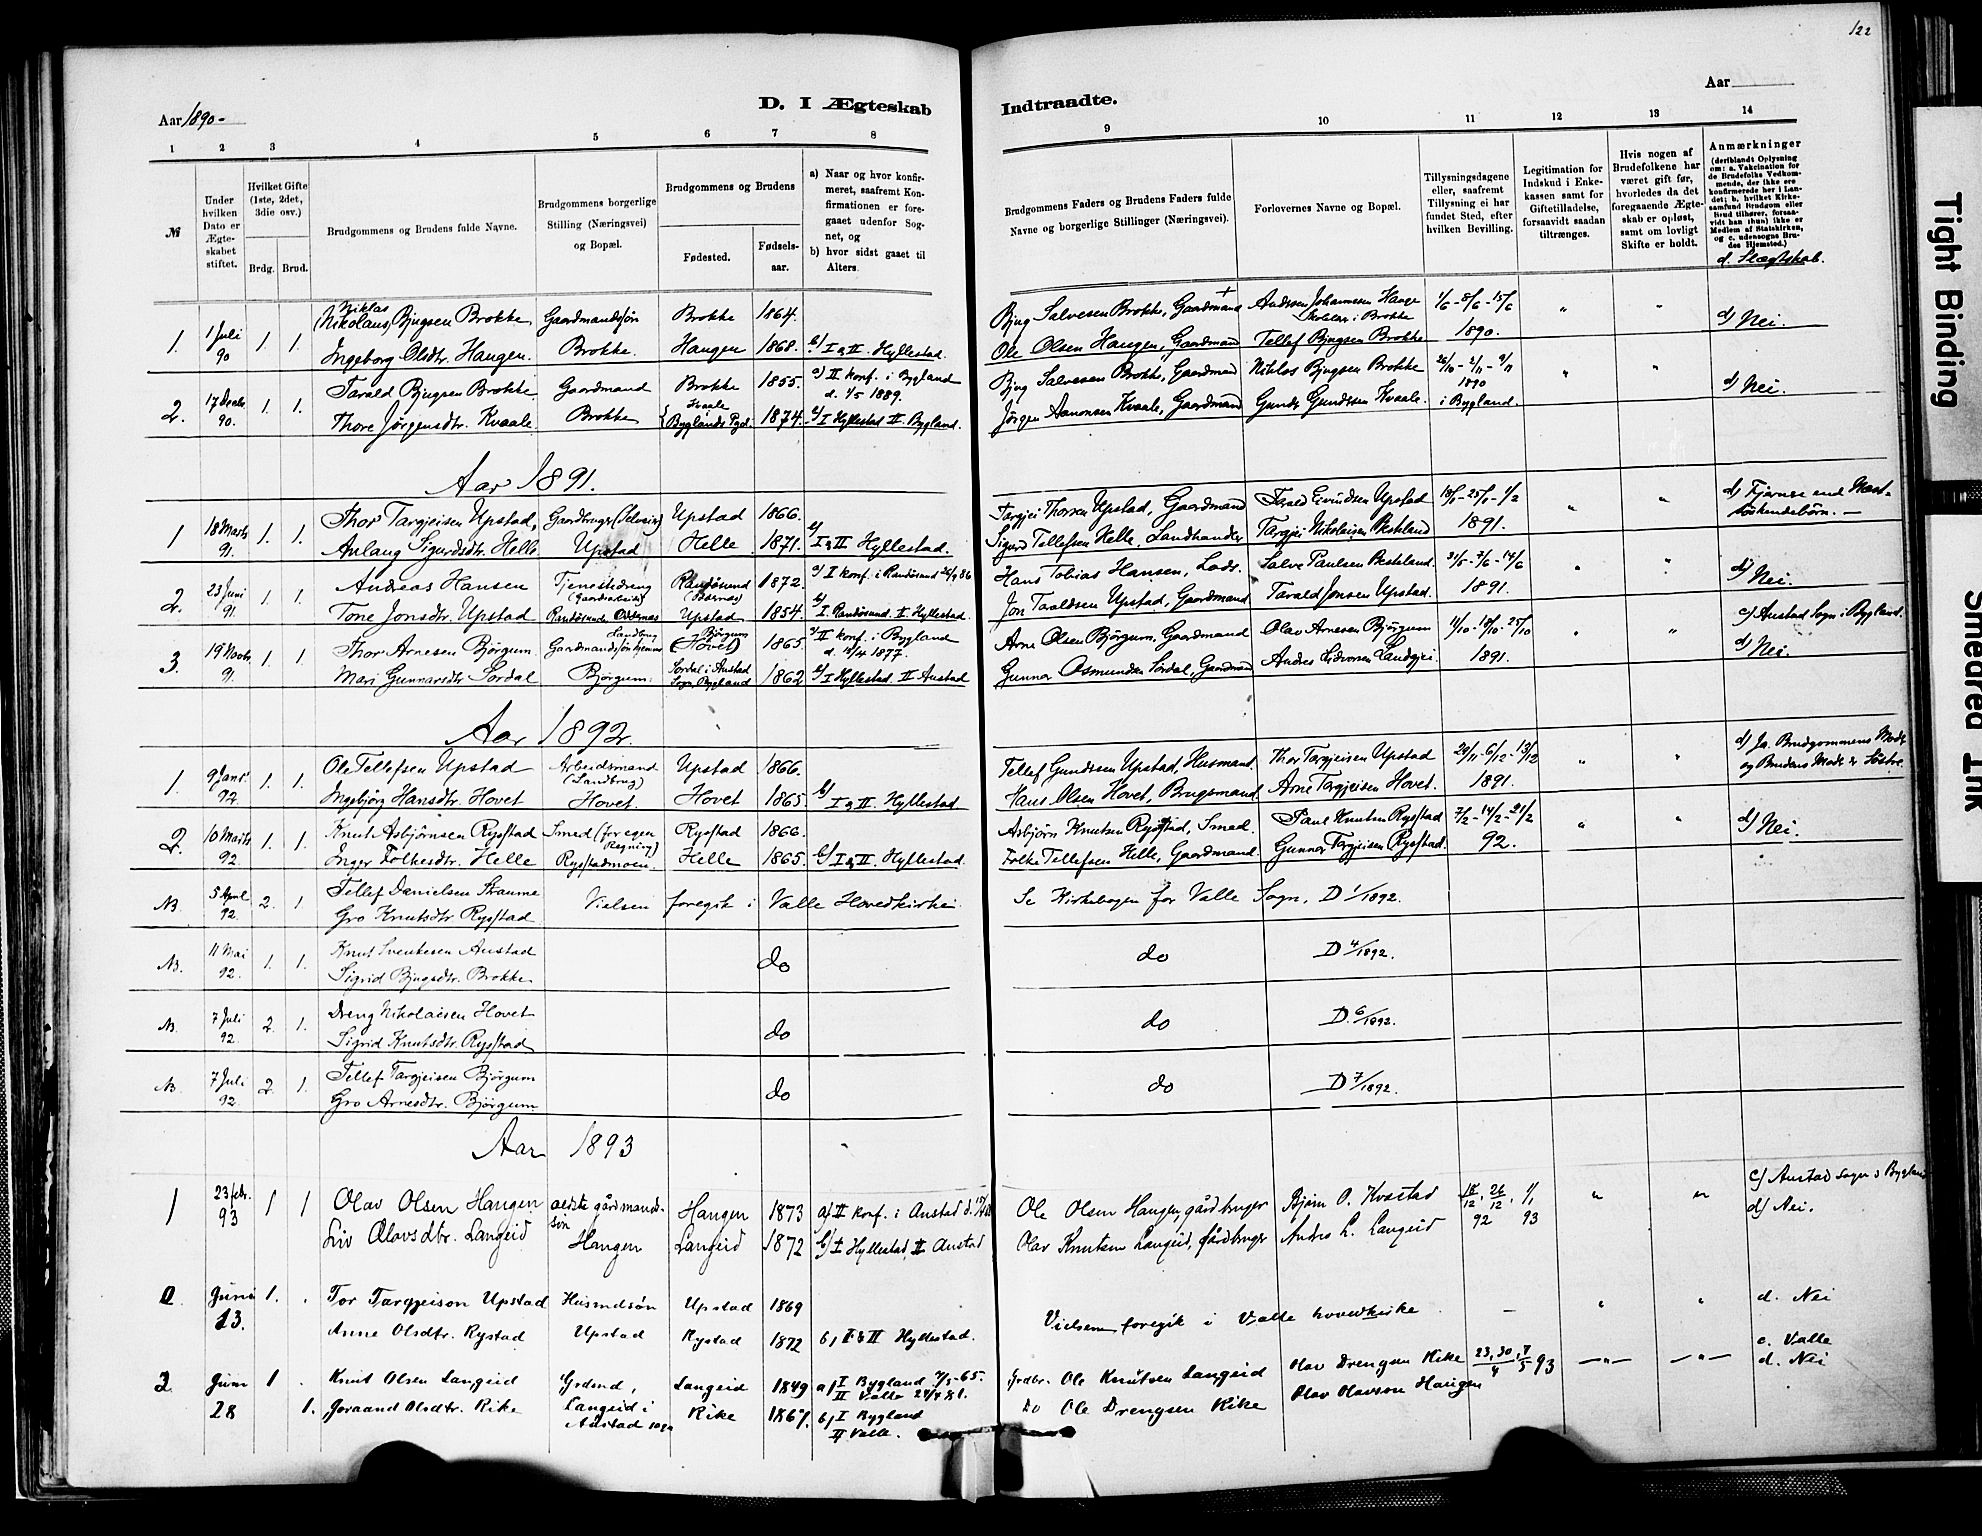 122
Aar 1890-
D. I Ægteskab
Indtraadte.
Aar
1 2 3 4 5 6 7 8 9 10 11 12 13 14
№
Under hvilken Dato er Ægteskabet stiftet.
Hvilket Gifte (1ste, 2det, 3die osv.)
Brdg. Brud.
Brudgommens og Brudens fulde Navne.
Brudgommens borgerlige Stilling (Næringsvei) og Bopæl.
Brudgommens og Brudens
Fødested.
Fødsels-aar.
a) Naar og hvor konfirmeret, saafremt Konfirmationen er foregaaet udenfor Sognet, og
b) hvor sidst gaaet til Alters.
Brudgommens Faders og Brudens Faders fulde Navne og borgerlige Stillinger (Næringsvei).
Forlovernes Navne og Bopæl.
Tillysningsdagene eller, saafremt Tillysning ei har fundet Sted, efter hvilken Bevilling.
Legitimation for Indskud i Enkekassen samt for Giftetilladelse, forsaavidt saadan tiltrænges.
Hvis nogen af Brudefolkene har været gift før, hvorledes da det foregaaende Ægteskab er opløst, samt om lovligt Skifte er holdt.
Anmærkninger
(deriblandt Oplysning om: a. Vakcination for de Brudefolks Vedkommende, der ikke ere konfirmerede her i Landet; b. hvilket Kirkesamfund Brudgom eller Brud tilhører, forsaavidt han (hun) ikke er Medlem af Statskirken, og c. udensogns Brudes Hjemsted.)
d. Slægtskab.
Niklas
1. 1 Juli 90 1. 1. (Nikolaus) Bjugsen Brokke Gaardmandssøn Brokke 1864. Bjug Salvesen Brokke, Gaardmand + Andreas Johannessen Hauge i Brokke 1/6 - 8/6 - 15/6 " "
Ingeborg Olsdtr. Haugen. Brokke. Haugen 1868. b/ I & II. Hyllestad. Ole Olsen Haugen, Gaardmand Tellef Bjugsen Brokke 1890. d) Nei.
2. 17 Decbr. 90. 1. 1. Tarald Bjugsen Brokke Gaardmand Brokke 1855. a) II konf. i Bygland d. 1/5 1889. Bjug Salvesen Brokke, Gaardmand Niklas Bjugsen Brokke 26/10 - 2/11 - 9/11 1890 " "
Thore Jørgensdtr. Kvaale Brokke Kvaale Byglands Pgd. 1874. b/ I Hyllestad II. Bygland. Jørgen Aanonsen Kvaale, Gaardmand Gunder Gundersen Kvaale. i Bygland. d) Nei.
Aar 1891.
1 18 Marts 91. 1. 1. Thor Targjeisen Upstad, Gaardbruger (Selveier) Upstad 1866. Targjei Thorsen Upstad, Gaardmand Tarald Eivindsen Upstad 18/1 - 25/1 - 1/2 " " d) Fjernere end Næst-
Aslaug Sigurdsdtr. Helle Upstad Helle 1871. b/ I & II Hyllestad. Sigurd Tellefsen Helle, Landhandler Targjei Nikolaisen Besteland 1891. søskendebørn. —
2. 23 Juni 91. 1. 1. Andreas Hansen Tjenestedreng (Gaardsarbeide) Randøsund (Odernæs) 1872. a) I konf. i Randøsund 26/9 86 Hans Tobias Hansen, Lods. Salve Paulsen Besteland. 31/5 - 7/6 - 14/6 " "
Tone Jonsdtr. Upstad Randøsund Odernæs Upstad 1854. b/ I. Randøsund. II. Hyllestad. Jon Taraldsen Upstad, Gaardmand Tarald Jonsen Upstad. 1891. d) Nei.
3. 19 Novbr. 91. 1. 1. Thor Arnesen Bjørgum. Gaardmandssøn Landbrug hjemme Bjørgum (Hovet) 1865. a) II konf. i Bygland d. 15/4 1877. Arne Olsen Bjørgum, Gaardmand Olav Arnesen Bjørgum 11/10 - 18/10 - 25/10 " " c) Austad Sogn i Bygland.
Mari Gunnarsdtr Sordal Bjørgum. Sordal i Austad Sogn, Bygland 1862 b/ I Hyllestad II Austad Gunnar Osmundsen Sordal, Gaardmand Andres Landgjei. 1891. d) Nei.
Aar 1892.
1. 9 Janr. 92 1. 1. Ole Tellefsen Upstad Arbeidsmand (Landbrug) Upstad 1866. Tellef Gundersen Upstad, Husmand. Thor Targjeisen Upstad 29/11 - 6/12 - 13/12 " " d) Ja. Brudgommens Moder
Ingebjørg Hansdtr. Hovet Hovet. Hovet 1865 b/ I & II. Hyllestad. Hans Olsen Hovet, Brugsmand. Arne Targjeisen Hovet. 1891. og Brudens Moder er Søstre.
2. 10 Marts 92. 1. 1. Knut Asbjørnsen Rysstad Smed (for egen Regning) Rysstad 1866. Asbjørn Knutsen Rysstad, Smed. Paul Knutsen Rysstad 7/2 - 14/2 - 21/2 " "
Inger Folkesdtr. Helle Rysstadmoen. Helle 1865. b/ I & II. Hyllestad. Folke Tellefsen Helle, Gaardmand. Gunnar Targjeisen Rysstad. 92. d) Nei.
NB. 5 April 92. 2. 1 Tellef Danielsen Straume Vielsen foregik i Valle Hovedkirke. Se Kirkebogen for Valle Sogn, D 1/1892.
Gro Knutsdtr Rysstad
NB. 11 Mai 92. 1. 1. Knut Svenkesen Austad do do D 4/1892.
Sigrid Bjugsdtr. Brokke
NB. 7 Juli 92. 2. 1. Dreng Nikolaisen Hovet do do D. 6/1892.
Sigrid Knutsdtr. Rysstad
NB. 7 Juli 92. 2. 1. Tellef Targjeisen Bjørgum do do D 7/1892.
Gro Arnesdtr. Bjørgum
Aar 1893
1 23 febr. 93 1 1 Olav Olsen Haugen ældste gårdmandssøn Haugen 1873 a) II konf. i Austad d. Ole Olsen Haugen, gårdbruger Bjørn O. Kvastad 18/12, 26/12, 1/1 " " c) Austad Sogn i Bygland
Liv Olavsdtr. Langeid Haugen Langeid 1872 b) I Hyllestad, II Austad Olav Knutsen Langeid, gårdbruger Andres L. Langeid 92 93 d) Nei.
Juni 13. 1. Tor Targjeison Upstad Husmdsøn Upstad 1869 Vielsen foregik i Valle hovedkirke. — " " d. Nei
Anne Olsdtr. Rystad Upstad Rystad 1872 b, I & II Hyllestad.
3. Juni 28 1 Knut Olsen Langeid Grdmd, Langeid 1849 a) I Bygland 7/5-65. II Valle 24/4 81. Grdbr. Ole Knutsen Langeid Olav Drengsen Rike 23, 30/4, 7/5 93 —"— —"— c. Valle
1. Joraand Olsdtr. Rike Langeid i Austad sogn Rike 1867. b, I Bygland II Valle. Do Ole Drengsen Rike Olav Olavson Haugen d. Nei
Tight Binding
Smeared Ink